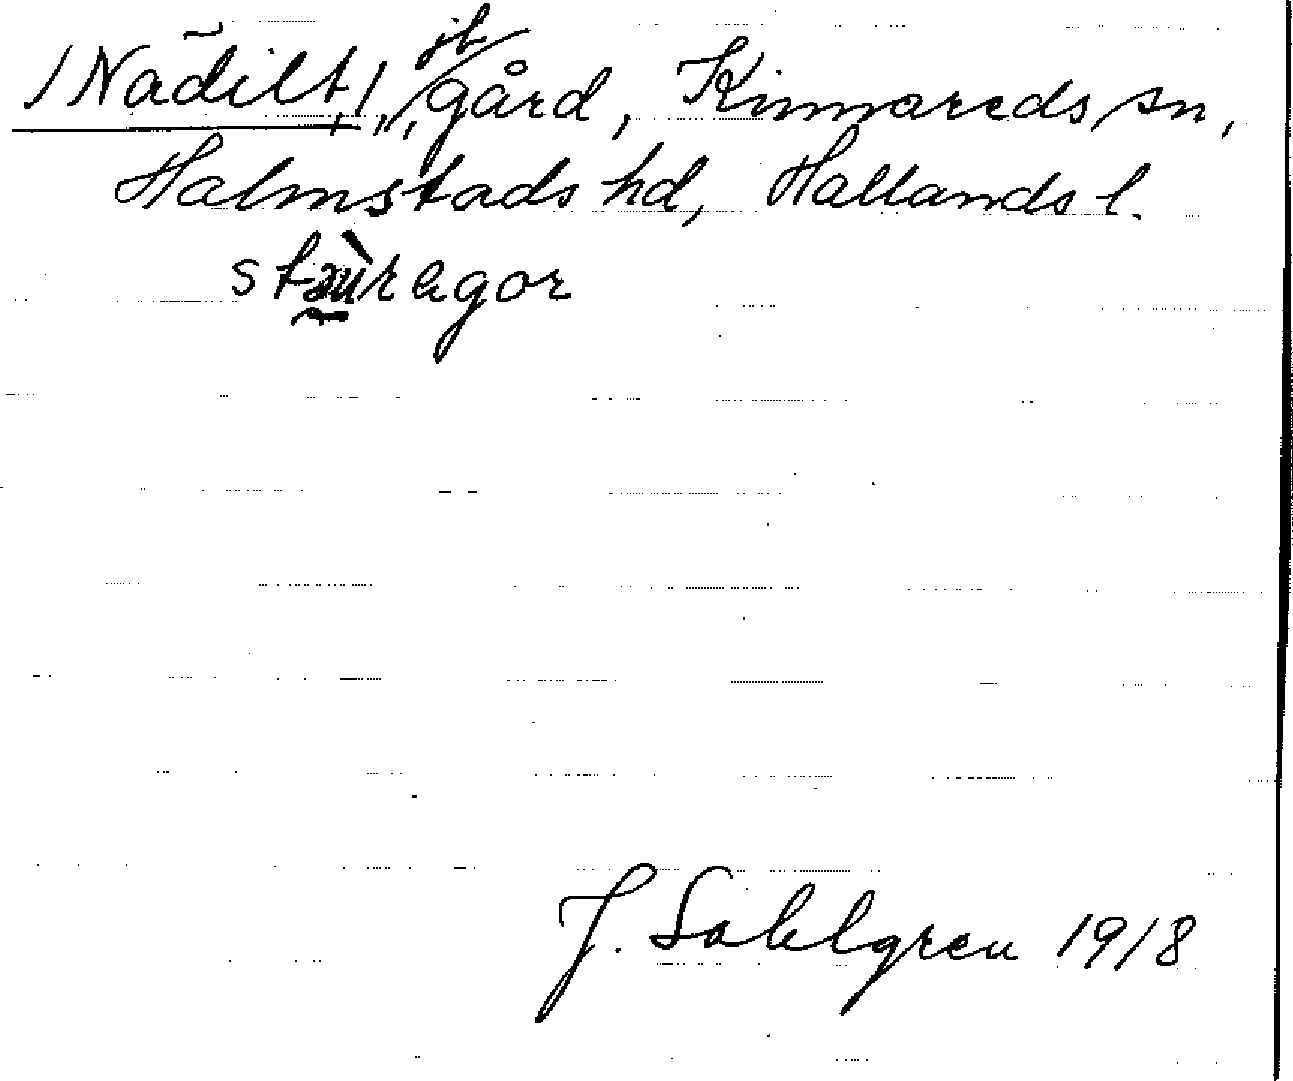 /Nädilt,/ jb
gård, Kinnareds sn,
Halmstads hd, Hallands l.
J. Sahlgren 1918